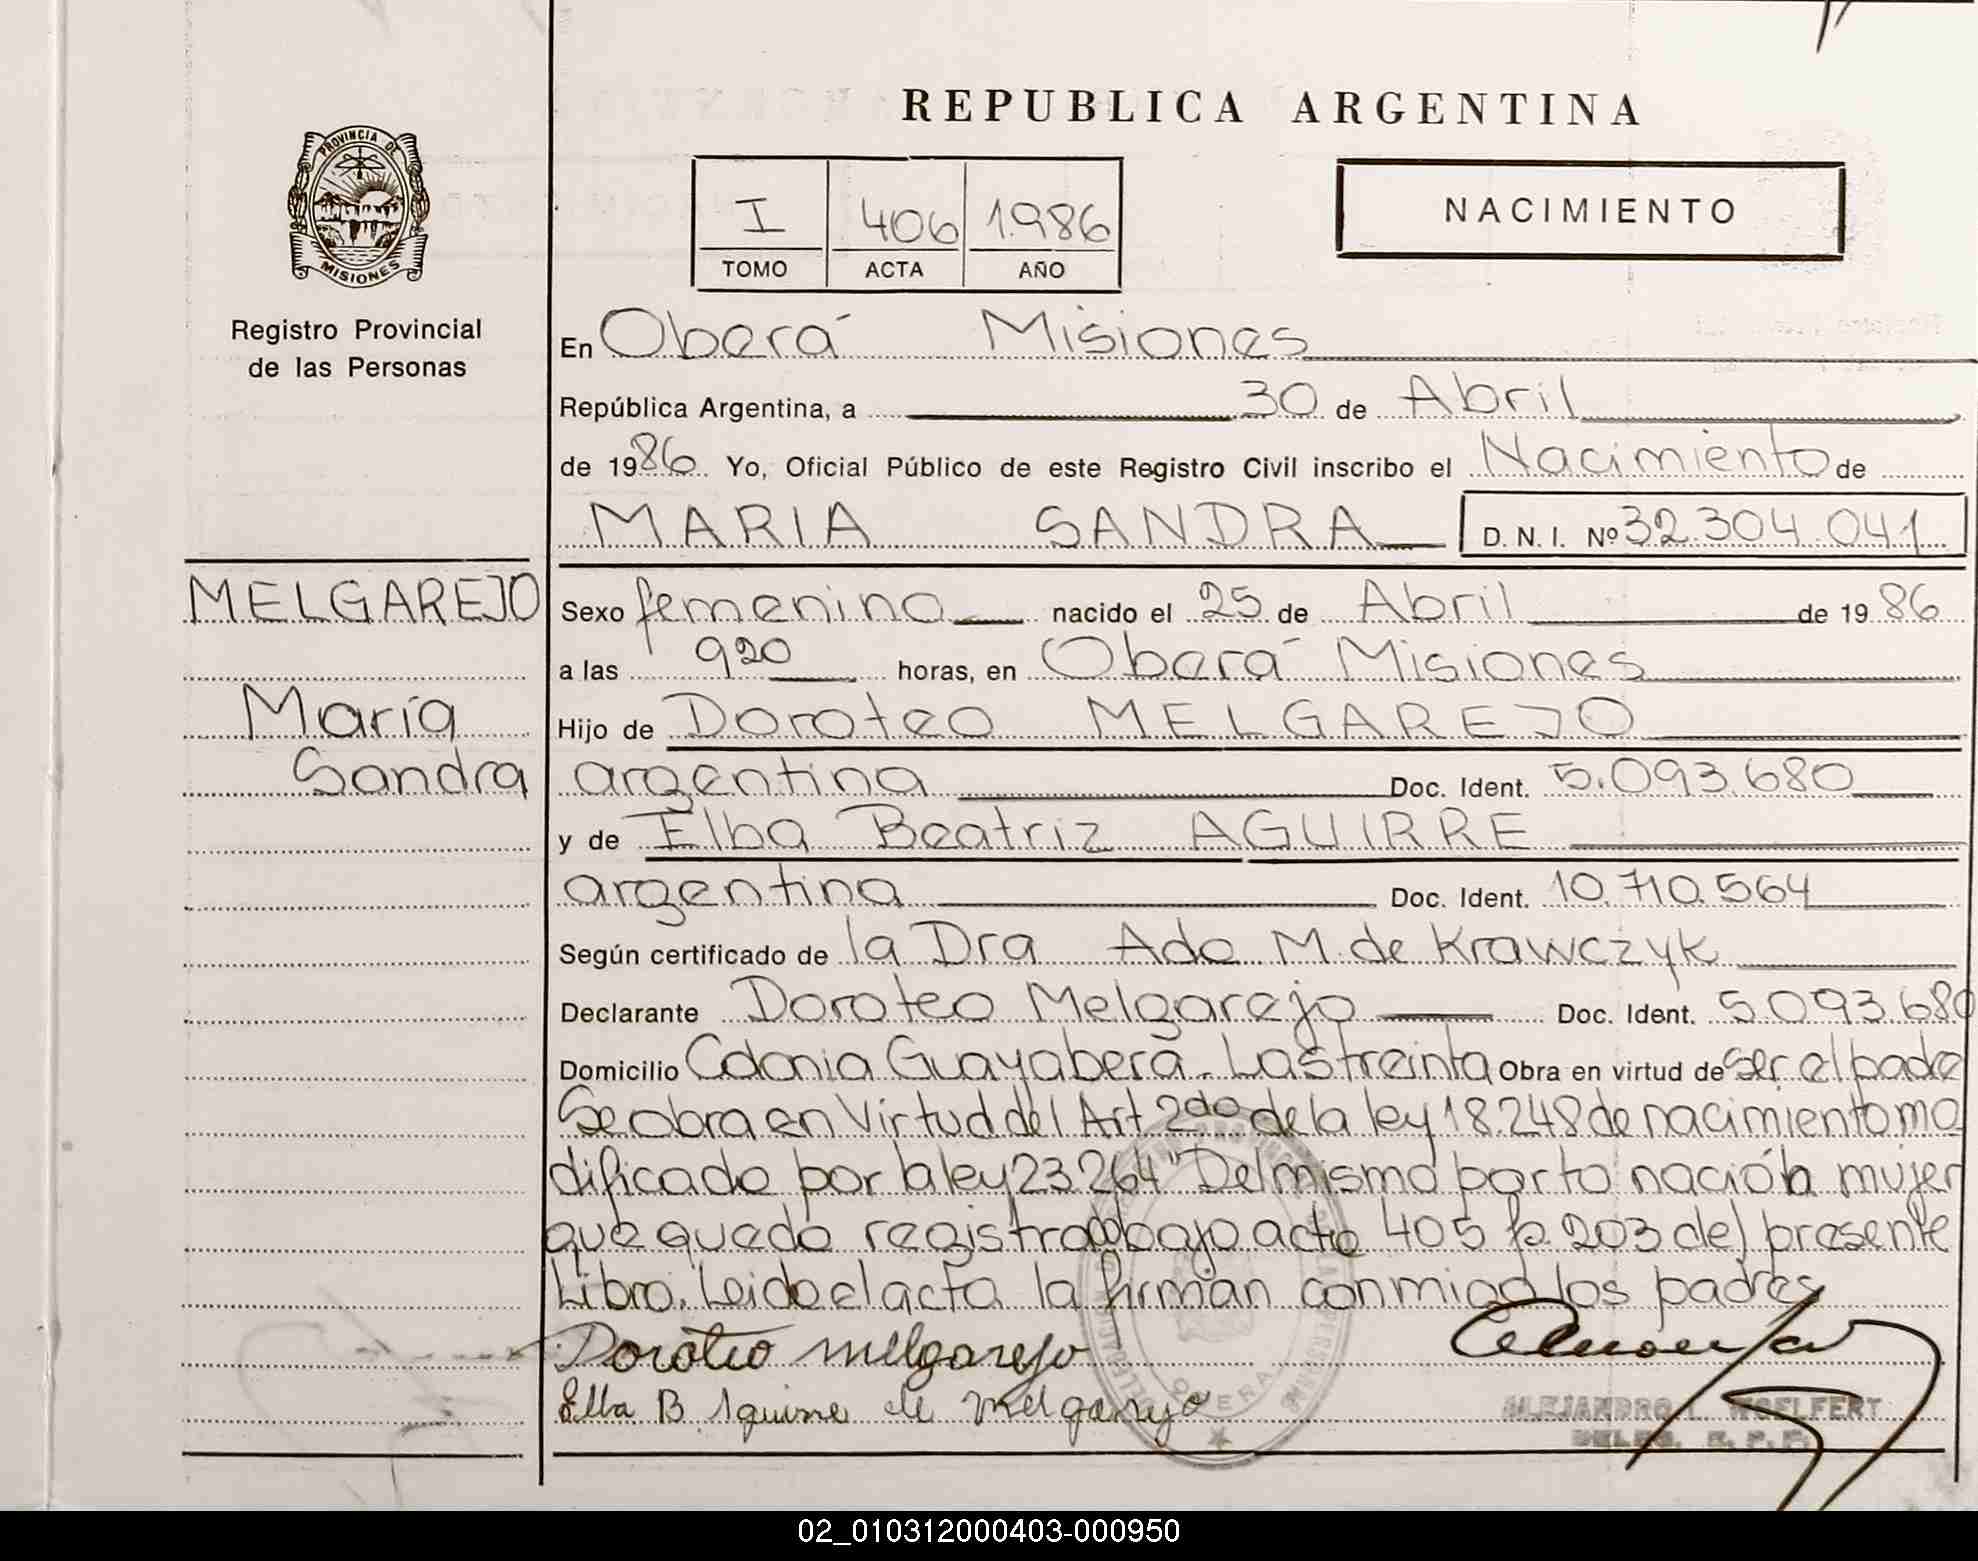 REPUBLICA ARGENTINA
PROVINCIA DE
MISIONES
Registro Provincial
de las Personas
I 406 1986
TOMO ACTA AÑO
NACIMIENTO
En Oberá Misiones
República Argentina, a 30 de Abril
de 1986 Yo, Oficial Público de este Registro Civil inscribo el Nacimiento de
MARIA SANDRA D. N. I. Nº 32.304.041
MELGAREJO
María
Sandra
Sexo femenino nacido el 25 de Abril de 1986
a las 920 horas, en Oberá Misiones
Hijo de Doroteo MELGAREJO
argentina Doc. Ident. 5.093.680
y de Elba Beatriz AGUIRRE
argentina Doc. Ident. 10.710.564
Según certificado de la Dra Ada M. de Krawczyk
Declarante Doroteo Melgarejo Doc. Ident. 5.093.680
Domicilio Colonia Guayabera. Las treinta Obra en virtud de ser el padre
Se obra en Virtud del Art. 2do de la ley 18.248 de nacimiento mo
dificado por la ley 23.264" Del mismo parto nació la mujer
que quedó registrado bajo acta 405 fo 203 del presente
Libro. Leido el acta la firman conmigo los padres
Doroteo melgarejo
Elba B Aguirre de melgarejo
OBERA
ALEJANDRO L. WOELFERT
DELEG. R. P. P.
02_010312000403-000950